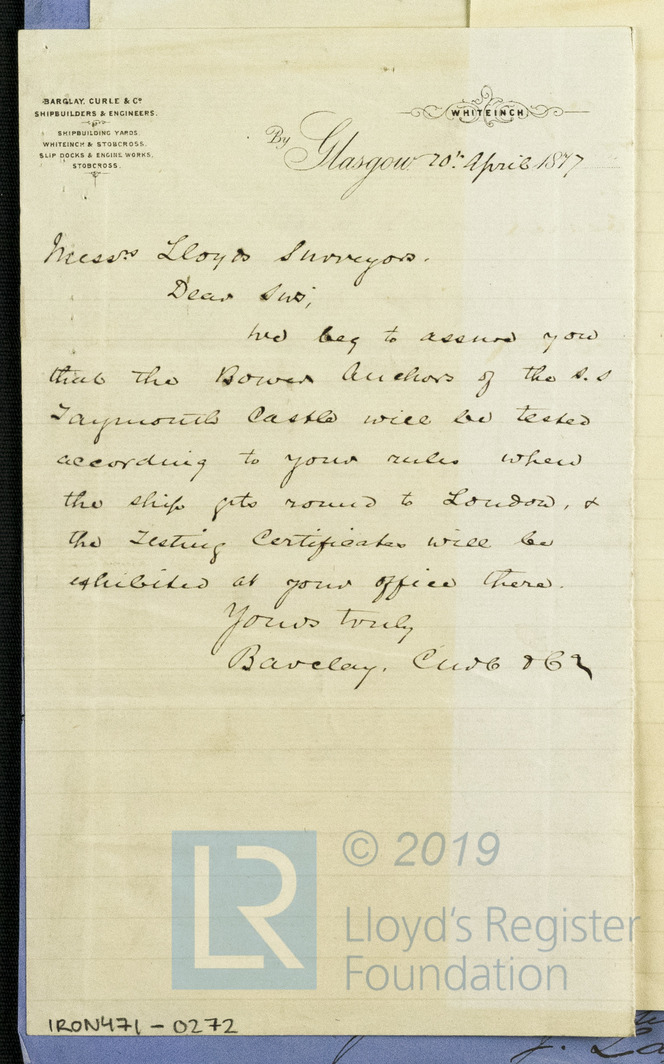 BARCLAY, CURLE & Cº
SHIPBUILDERS & ENGINEERS.
SHIPBUILDING YARDS.
WHITEINCH & STOBCROSS.
SLIP DOCKS & ENGINE WORKS,
STOBCROSS.
WHITEINCH,
By Glasgow 20th April 1877
Messrs Lloyds Surveyors.
Dear Sirs,
We beg to assure you
that the Bower Anchors of the s.s
Taymouth Castle will be tested
according to your rules when
the ship gets round to London, &
the Testing Certificates will be
exhibited at your office there.
Yours truly
Barclay, Curle & Co
© 2019
LR
Lloyd's Register
Foundation
IRON471-0272